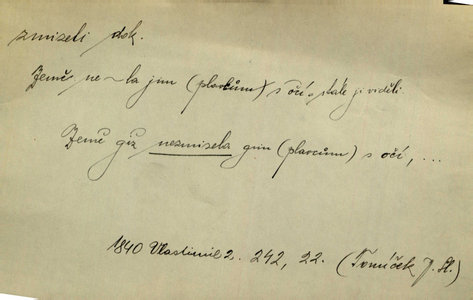 zmizeti dok.
Země ne~la jim (plavcům) s očí, stále ji viděli.
Země giž nezmizela gim (plavcům) s očí, ...
1840 Vlastimil 2. 242, 22. (Tomíček J. Sl.)